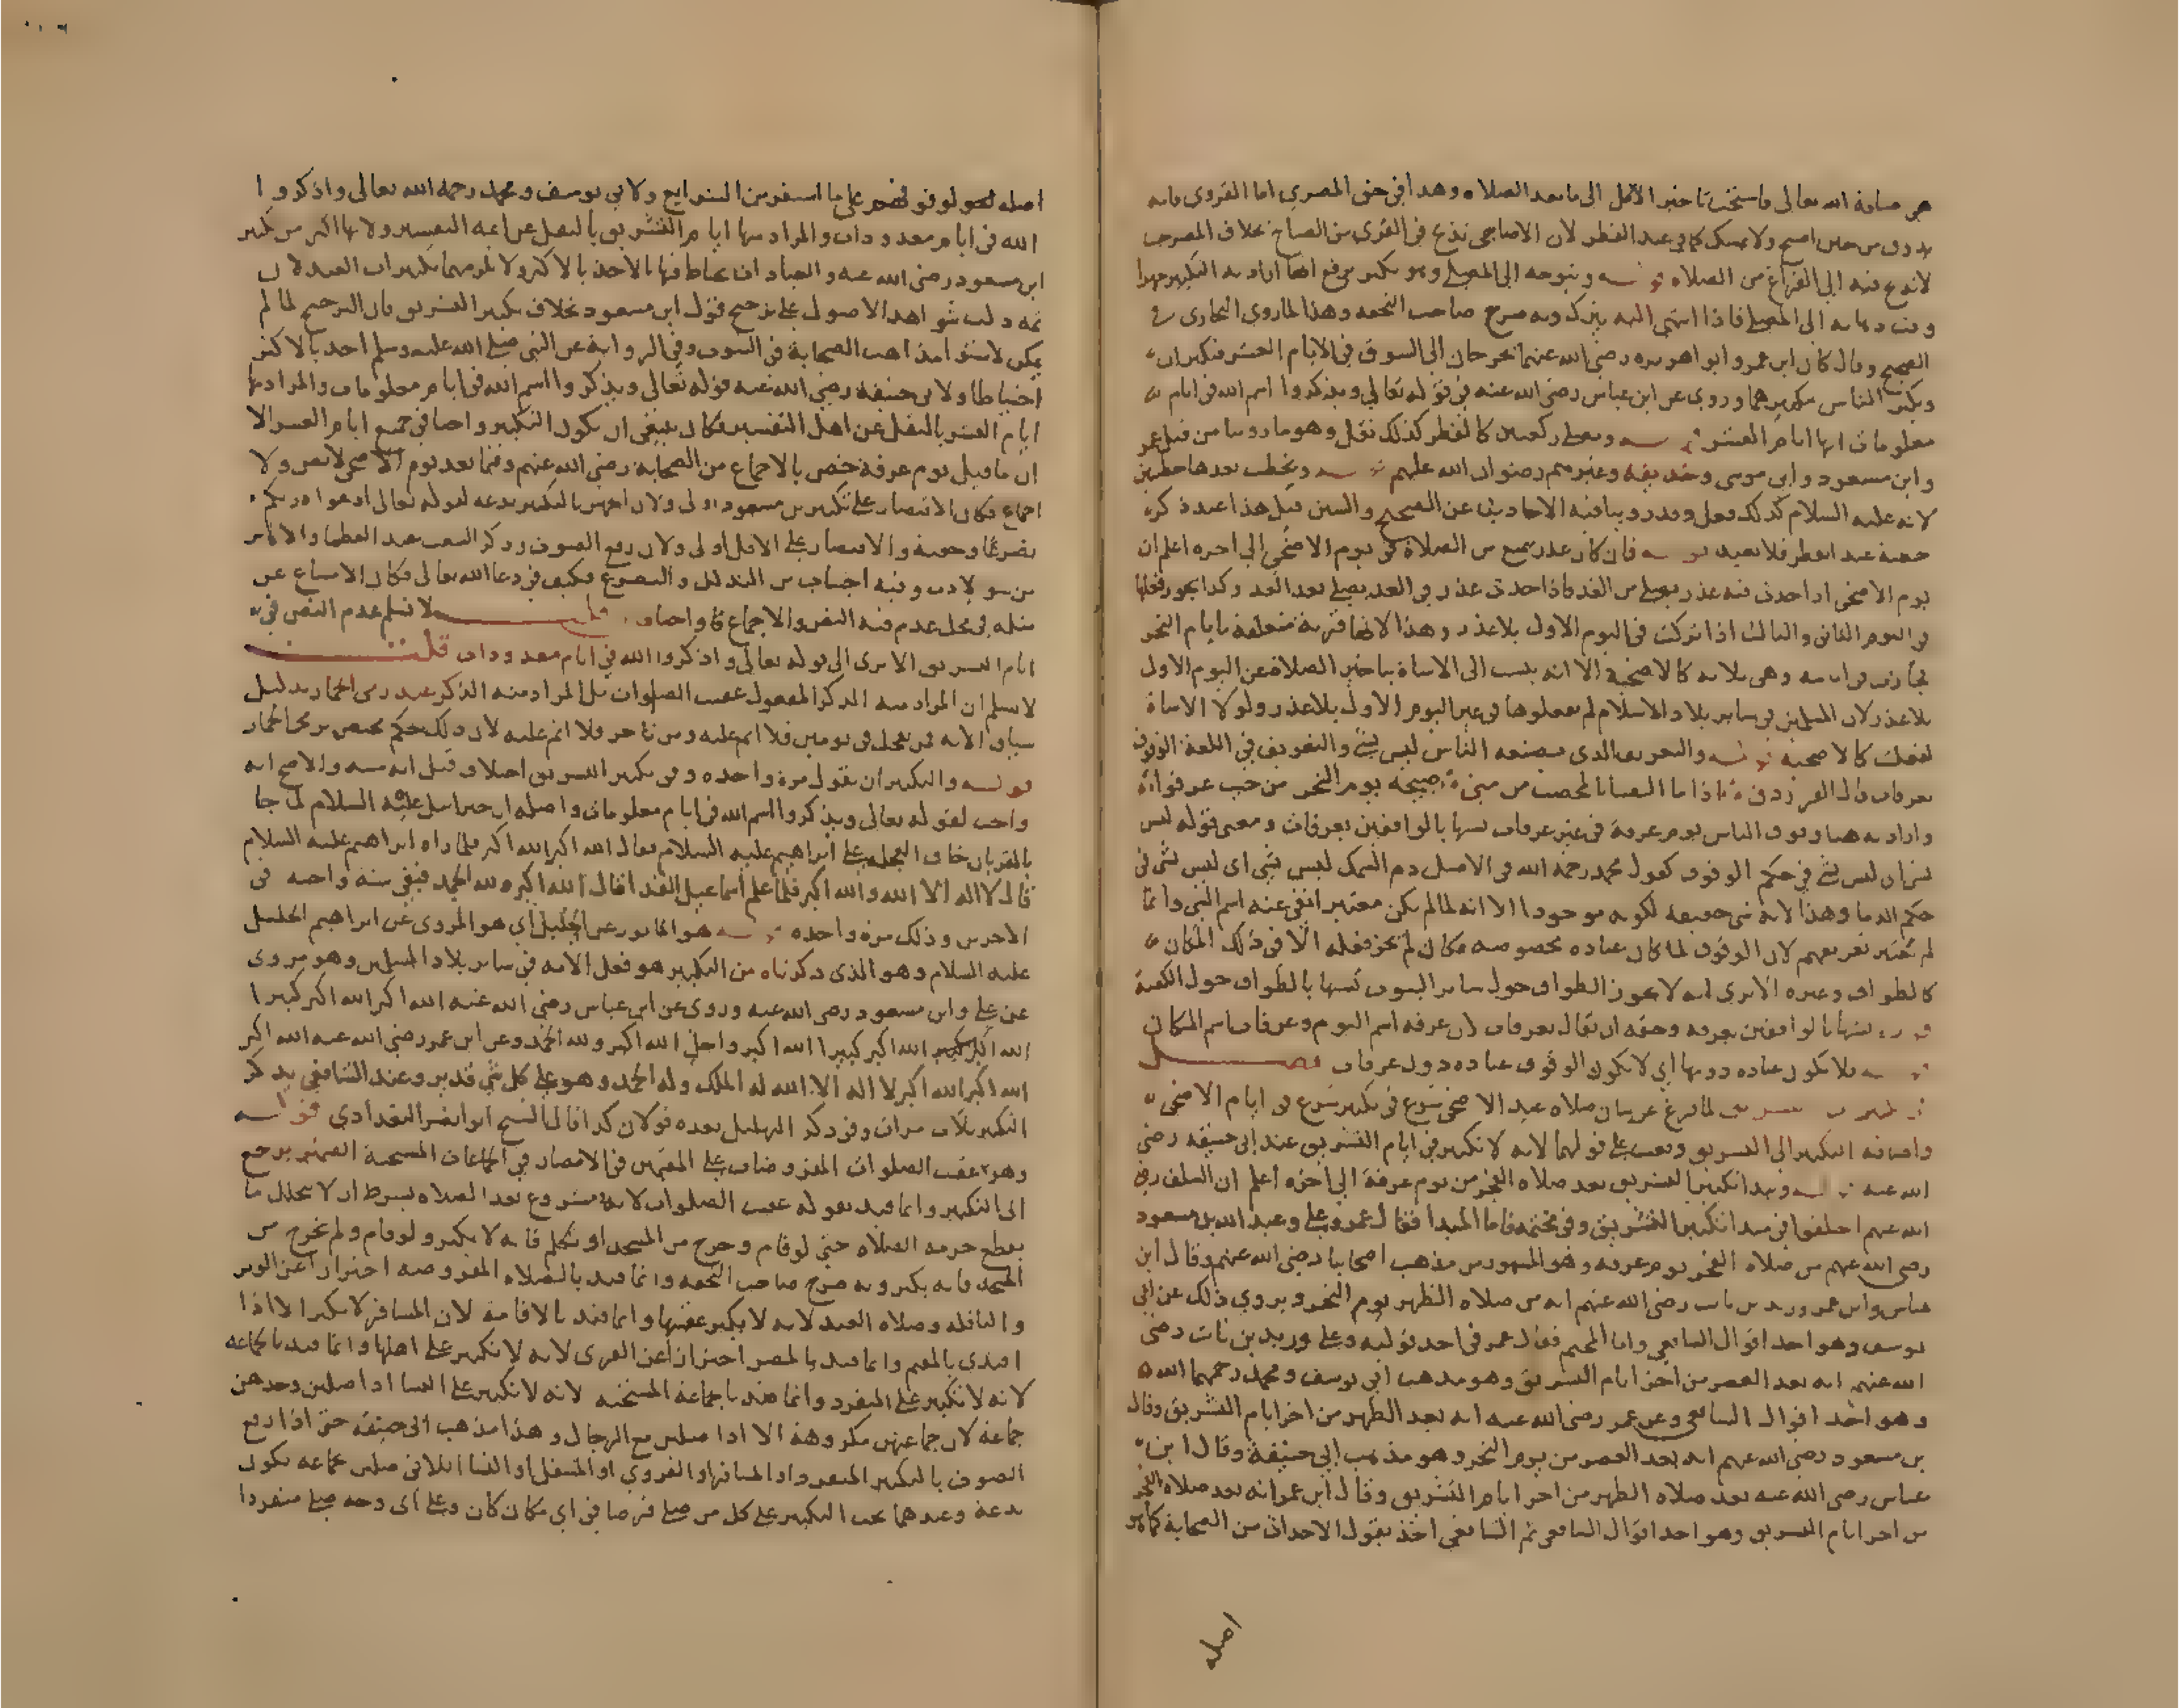 هي ضيافة الله تعالى فاستحب تاخير الاكل الى ما بعد الصلاه وهذا في حق المصري اما القروي فانه
يذوق من حين اصبح ولا يمسك كما في عيد الفطر لان الاضاحي تذبح في القرى من الصباح بخلاف المصر حيث
لا تذبح فيه الى الفراغ من الصلاه قوله ويتوجه الى المصلى وهو يكبر يرفع بها اراد به التكبير جهرا
وقت ذهابه الى المصلى فاذا انتهى اليه يترك وبه صرح صاحب التحفه وهذا لما روى البخارى في
الصحيح وقال كان ابن عمر وابو هريره رضي الله عنهما يخرجان الى السوق في الايام العشر فيكبران
ويكبر الناس بتكبيرهما وروى عن ابن عباس رضي الله عنه في قوله تعالى ويذكروا اسم الله في ايام
معلومات انها ايام العشر قوله ويصلي ركعتين كالفطر كذلك نقل وهو ما روينا من قبل عن عمر
وابن مسعود وابي موسى وحذيفه وغيرهم رضوان الله عليهم قوله ويخطب بعدها خطبتين
لانه عليه السلام كذلك فعل وقد روينا فيه الاحاديث عن الصحيح والسنن قبل هذا عند ذكر
خطبة عيد الفطر فلا نعيد قوله فان كان عذر يمنع من الصلاة في يوم الاضحى الى اخره اعلم ان
يوم الاضحى اذا حدث فيه عذر يصلي من الغد فاذا حدث عذر في الغد يصلي بعد الغد وكذا يجوز فعلها
في اليوم الثاني والثالث اذا تركت في اليوم الاول بلا عذر وهذا لانها قربة متعلقة بايام النحر
فجازت في ايامه وهي ثلاثه كالاضحية الا انه ينسب الى الاساة بتاخير الصلاة عن اليوم الاول
بلا عذر لان المسلمين في ساير بلاد الاسلام لم يفعلوها في غير اليوم الاول بلا عذر ولولا الاساة
لفعلت كالاضحية قوله والتعريف الذي يصنعه الناس ليس بشي والتعريف في اللغة الوقوف
بعرفات قال الفرزدق اذا ما التقينا بالمحصب من منى صبيحة يوم النحر من حيث عرفوا
واراد به هنا وقوف الناس يوم عرفة في غير عرفات تشبها بالواقفين بعرفات ومعنى قوله ليس
بشي اي ليس بشي في حكم الوقوف كقول محمد رحمه الله في الاصل دم السمك ليس بشي اي ليس بشي في
حكم الدما وهذا لانه شي حقيقه لكونه موجودا الا انه لما لم يكن معتبرا نفى عنه اسم الشي وانما
لم يعتبر تعريفهم لان الوقوف لما كان عباده مخصوصه بمكان لم يجز فعله الا في ذلك المكان
كالطواف وغيره الا يرى انه لا يجوز الطواف حول ساير البيوت تشبها بالطواف حول الكعبة
قوله تشبها بالواقفين بعرفه وحقه ان يقال بعرفات لان عرفه اسم اليوم وعرفات اسم المكان
قوله فلا يكون عباده دونها اي لا يكون الوقوف عباده دون عرفات فصل
في تكبير التشريق لما فرغ عن بيان صلاه عيد الاضحى شرع في تكبير شرع في ايام الاضحى
واضافه التكبير الى التشريق ويصح على قولهما لانه لا تكبير في ايام التشريق عند ابي حنيفه رضي
الله عنه قوله ويبدا تكبير التشريق بعد صلاه الفجر من يوم عرفة الى اخره اعلم ان السلف رضي
الله عنهم اختلفوا في مبدا تكبير التشريق وفي مختتمه فاما المبدا فقال عمر وعلي وعبد الله بن مسعود
رضي الله عنهم من صلاه الفجر يوم عرفه وهو المشهور من مذهب اصحابنا رضي الله عنهم وقال ابن
عباس وابن عمر وزيد بن ثابت رضي الله عنهم انه من صلاه الظهر يوم النحر ويروى ذلك عن ابي
يوسف وهو احد اقوال الشافعي واما المختتم فقال عمر في احد قوليه وعلي وزيد بن ثابت رضي
الله عنهم انه بعد العصر من اخر ايام التشريق وهو مذهب ابي يوسف ومحمد رحمهما الله
وهو احد اقوال الشافعي وعن عمر رضي الله عنه انه بعد الظهر من اخر ايام التشريق وقال
بن مسعود رضي الله عنهم انه بعد العصر من يوم النحر وهو مذهب ابي حنيفة وقال ابن
عباس رضي الله عنه بعد صلاه الظهر من اخر ايام التشريق وقال ابن عمر انه بعد صلاه الفجر
من اخر ايام التشريق وهو احد اقوال الشافعي ثم الشافعي اخذ بقول الاحداث من الصحابة كما هو
اصله
اصله لهو لو فو على ما استقر من الشرايع ولابي يوسف ومحمد رحمه الله تعالى واذكروا
الله في ايام معدودات والمراد منها ايام التشريق بالنقل عن ايمة التفسير ولانها اكثر من تكبير
ابن مسعود رضي الله عنه والعبادات يحتاط فيها بالاخذ بالاكثر ولا يلزمهما تكبيرات العيد لان
ثمه دلت شواهد الاصول على ترجيح قول ابن مسعود بخلاف تكبير التشريق فان الترجيح لما لم
يمكن لاستوا مذاهب الصحابة في الثبوت وفي الرواية عن النبي صلى الله عليه وسلم اخذ بالاكثر
احتياطا ولابي حنيفه رضي الله عنه قوله تعالى ويذكروا اسم الله في ايام معلومات والمراد منها
ايام العشر بالنقل عن اهل التفسير فكان ينبغي ان يكون التكبير واجبا في جميع ايام العشر الا
ان ما قبل يوم عرفة خص بالاجماع من الصحابة رضي الله عنهم وفيما بعد يوم الاضحى لا نص ولا
اجماع فكان الاقتصار على تكبير بن مسعود اولى ولان الجهر بالتكبير بدعه لقوله تعالى ادعوا ربكم
تضرعا وخفية والاقتصار على الاقل اولى ولان رفع الصوت وذكر
من سو الادب وفيه اجتناب من التذلل والتضرع فكيف في دعا الله تعالى فكان الامتناع عن
مثله في محل عدم فيه النص والاجماع فاواجبا قلت لا نسلم عدم النص في
ايام التشريق الا يرى الى قوله تعالى واذكروا الله في ايام معدودات قلت
لا نسلم ان المراد منه الذكر المفعول عقيب الصلوات بل المراد منه الذكر عند رمي الجمار بدليل
سياق الايه فمن تعجل في يومين فلا اثم عليه ومن تاخر فلا اثم عليه لان ذلك حكم مختص برمي الجمار
قوله والتكبير ان يقول مرة واحده وفي تكبير التشريق اختلاف قيل انه سنه والاصح انه
واجب لقوله تعالى ويذكروا اسم الله في ايام معلومات واصله ان جبرايل عليه السلام لما جا
بالقربان خاف العجله على ابراهيم عليه السلام فقال الله اكبر الله اكبر فلما راه ابراهيم عليه السلام
قال لا اله الا الله والله اكبر فلما علم اسماعيل الفدا قال الله اكبر ولله الحمد فبقي سنه واجبه في
الاخرين وذلك مرة واحده قوله هو الماثور عن الخليل اي هو المروى عن ابراهيم الخليل
عليه السلام وهو الذي ذكرناه من التكبير هو فعل الامه في ساير بلاد المسلمين وهو مروى
عن علي وابن مسعود رضي الله عنه وروى عن ابن عباس رضي الله عنه الله اكبر الله اكبر كبيرا
الله اكبر كبيرا الله اكبر كبيرا الله اكبر واجل الله اكبر ولله الحمد وعن ابن عمر رضي الله عنه الله اكبر
الله اكبر الله اكبر لا اله الا الله له الملك وله الحمد وهو على كل شي قدير وعند الشافعي يذكر
التكبير ثلاث مرات وفي ذكر التهليل بعده قولان كذا قال الشيخ ابو نصر البغدادي قوله
وهو عقيب الصلوات المفروضات على المقيمين في الامصار في الجماعات المستحبة الضمير يرجع
الى التكبير وانما قيد بقوله عقيب الصلوات لانه مشروع بعد الصلاه بشرط ان لا يتخلل ما
يقطع حرمه الصلاه حتى لو قام وخرج من المسجد او تكلم فانه لا يكبر ولو قام ولم يخرج من
المسجد فانه يكبر وبه صرح صاحب التحفه وانما قيد بالصلاه المفروضه احترازا عن الوتر
والنافله وصلاه العيد لانه لا يكبر عقيبها وانما قيد بالاقامة لان المسافر لا يكبر الا اذا
اقتدى بالمقيم وانما قيد بالمصر احترازا عن القرى لانه لا تكبير على اهلها وانما قيد بالجماعه
لانه لا تكبير على المنفرد وانما قيد بالجماعة المستحبه لانه لا تكبير على النسا اذا صلين وحدهن
جماعة لان جماعتهن مكروهة الا اذا صلين مع الرجال وهذا مذهب ابي حنيفة حتى اذا رفع
الصوت بالتكبير المنفرد او المسافر او القروي او المتنفل او النسا اللاتي صلين بجماعه يكون
بدعة وعندهما يجب التكبير على كل من صلى فرضا في اي مكان كان وعلى اي وجه صلى منفردا